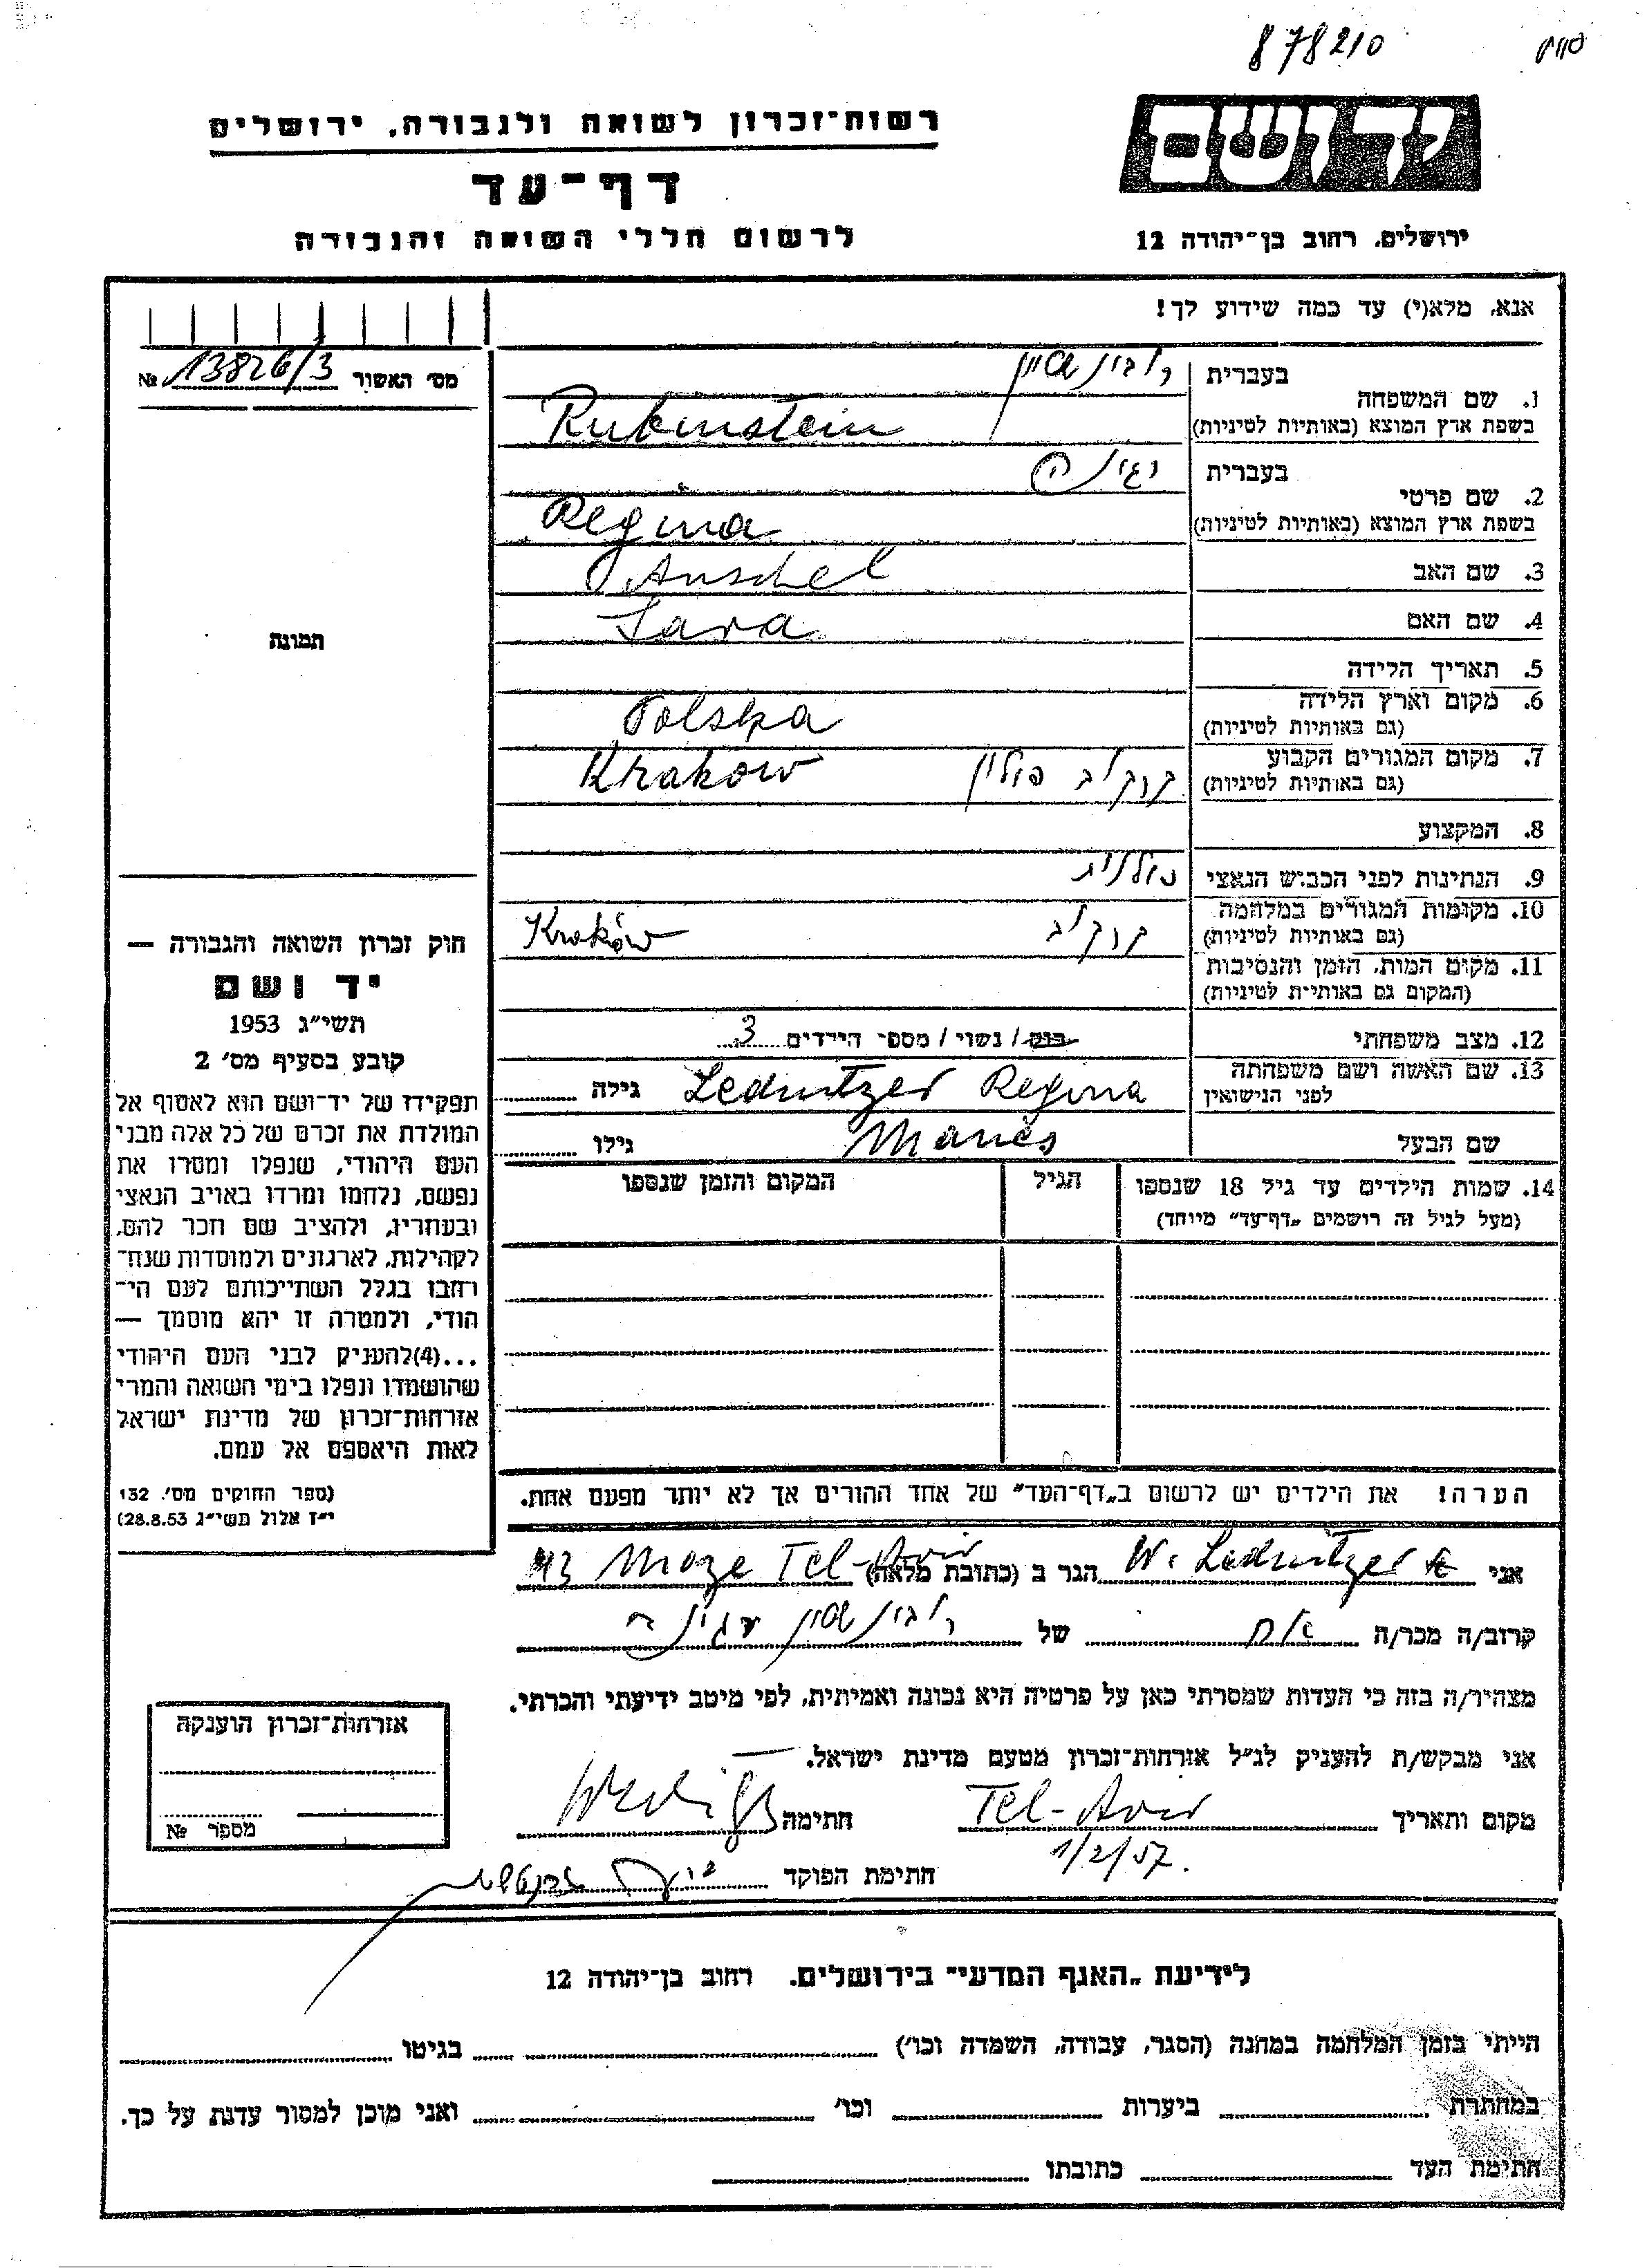 878210
יד ושם
רשות־זכרון לשואה ולגבורה, ירושלים
דף־עד
לרשום חללי השואה והגבורה
ירושלים, רחוב בן־יהודה 12
אנא, מלא(י) עד כמה שידוע לך!
מס׳ האשור 13826/3 №
בעברית רובינשטיין
1. שם המשפחה
בשפת ארץ המוצא (באותיות לטיניות) Rubinstein
בעברית רגינה
2. שם פרטי
בשפת ארץ המוצא (באותיות לטיניות) Regina
3. שם האב Anschel
4. שם האם Sara
תמונה
5. תאריך הלידה
6. מקום וארץ הלידה
(גם באותיות לטיניות) Polska
7. מקום המגורים הקבוע
(גם באותיות לטיניות) קרקוב פולין Krakow
8. המקצוע
9. הנתינות לפני הכבוש הנאצי פולנית
10. מקומות המגורים במלחמה
(גם באותיות לטיניות) קרקוב Kraków
11. מקום המות, הזמן והנסיבות
(המקום גם באותיות לטיניות)
12. מצב משפחתי רווק / נשוי / מספר הילדים 3
13. שם האשה ושם משפחתה
לפני הנישואין Lednitzer Regina גילה
שם הבעל Manes גילו
14. שמות הילדים עד גיל 18 שנספו הגיל המקום והזמן שנספו
(מעל לגיל זה רושמים „דף־עד״ מיוחד)
חוק זכרון השואה והגבורה —
יד ושם
תשי״ג 1953
קובע בסעיף מס׳ 2
תפקידו של יד־ושם הוא לאסוף אל
המולדת את זכרם של כל אלה מבני
העם היהודי, שנפלו ומסרו את
נפשם, נלחמו ומרדו באויב הנאצי
ובעוזריו, ולהציב שם וזכר להם,
לקהילות, לארגונים ולמוסדות שנח־
רבו בגלל השתייכותם לעם הי־
הודי, ולמטרה זו יהא מוסמך —
...(4)להעניק לבני העם היהודי
שהושמדו ונפלו בימי השואה והמרי
אזרחות־זכרון של מדינת ישראל
לאות היאספם אל עמם.
(ספר החוקים מס׳ 132,
י״ז אלול תשי״ג 28.8.53)
הערה! את הילדים יש לרשום ב„דף־העד״ של אחד ההורים אך לא יותר מפעם אחת.
אני W. Lednitzer הגר ב (כתובת מלאה) Maze Tel-Aviv
קרוב/ה מכר/ה אח של רובינשטיין רגינה
מצהיר/ה בזה כי העדות שמסרתי כאן על פרטיה היא נכונה ואמיתית, לפי מיטב ידיעתי והכרתי.
אני מבקש/ת להעניק לנ״ל אזרחות־זכרון מטעם מדינת ישראל.
מקום ותאריך Tel-Aviv חתימה
1/2/57.
חתימת הפוקד
אזרחות־זכרון הוענקה
מספר №
לידיעת „האגף המדעי״ בירושלים, רחוב בן־יהודה 12
הייתי בזמן המלחמה במחנה (הסגר, עבודה, השמדה וכו׳) בגיטו
במחתרת ביערות וכו׳ ואני מוכן למסור עדות על כך.
חתימת העד כתובתו